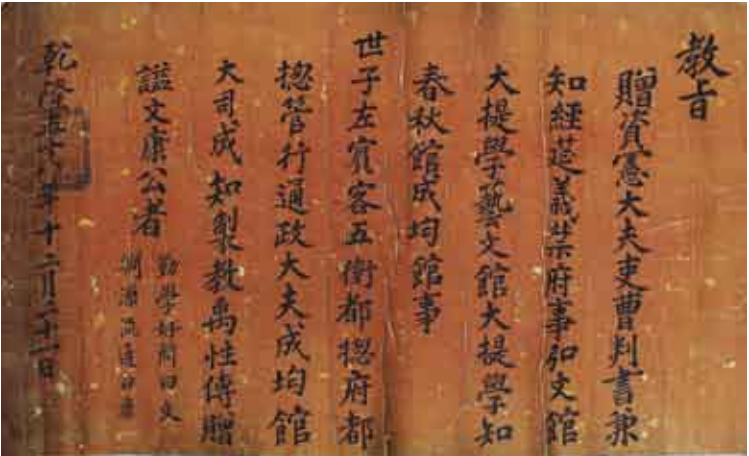 教旨
贈資憲大夫吏曹判書兼
知經筵義禁府事弘文館
大提學藝文館大提學知
春秋館成均館事
世子左賓客五衛都揔府都
揔管行通政大夫成均館
大司成知製教禹性傳贈
諡文康公者
勤學好問曰文
淵源流通曰康
乾隆五十八年十二月二十一日